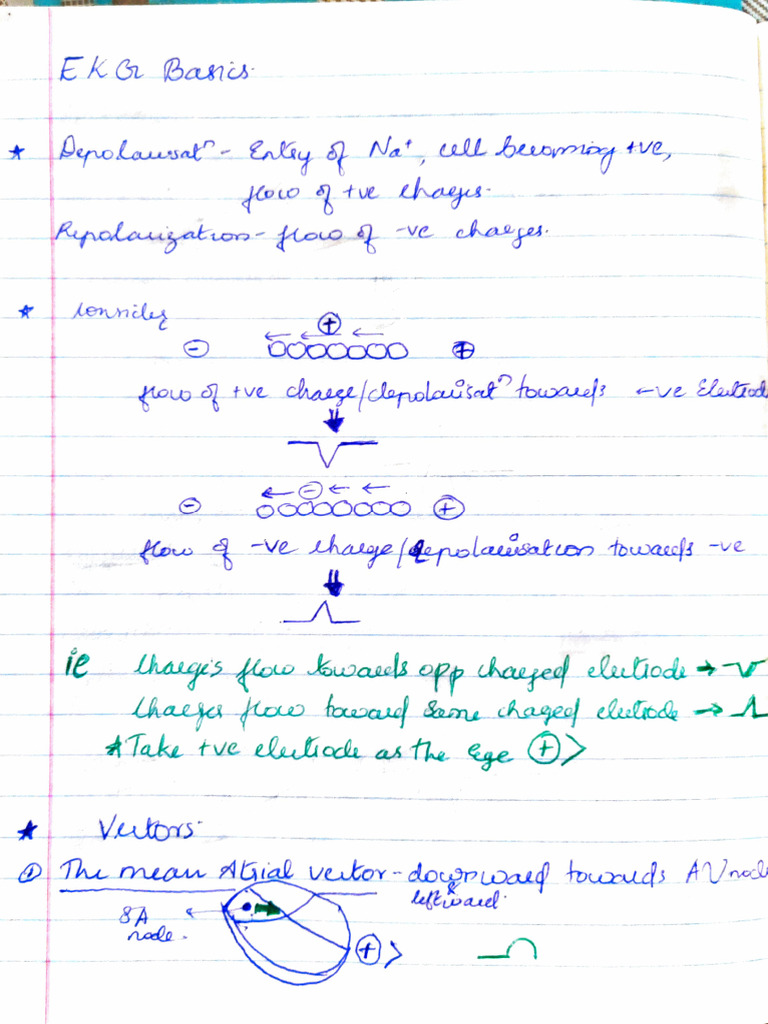 EKG Basics.
★ Depolarisatⁿ - Entry of Na⁺, cell becoming +ve,
flow of +ve charges.
Repolarization - flow of -ve charges.
★ Consider
+
- +
flow of +ve charge/depolarisatⁿ towards -ve Electrode
- ← - ← ←
- +
flow of -ve charge/repolarisation towards -ve
ie Charges flow towards opp charged electrode →
Charges flow toward same charged electrode →
* Take +ve electrode as the Eye (+)>
★ Vectors.
① The mean Atrial vector - downward towards AV node
& leftward.
SA
node.
(+)>